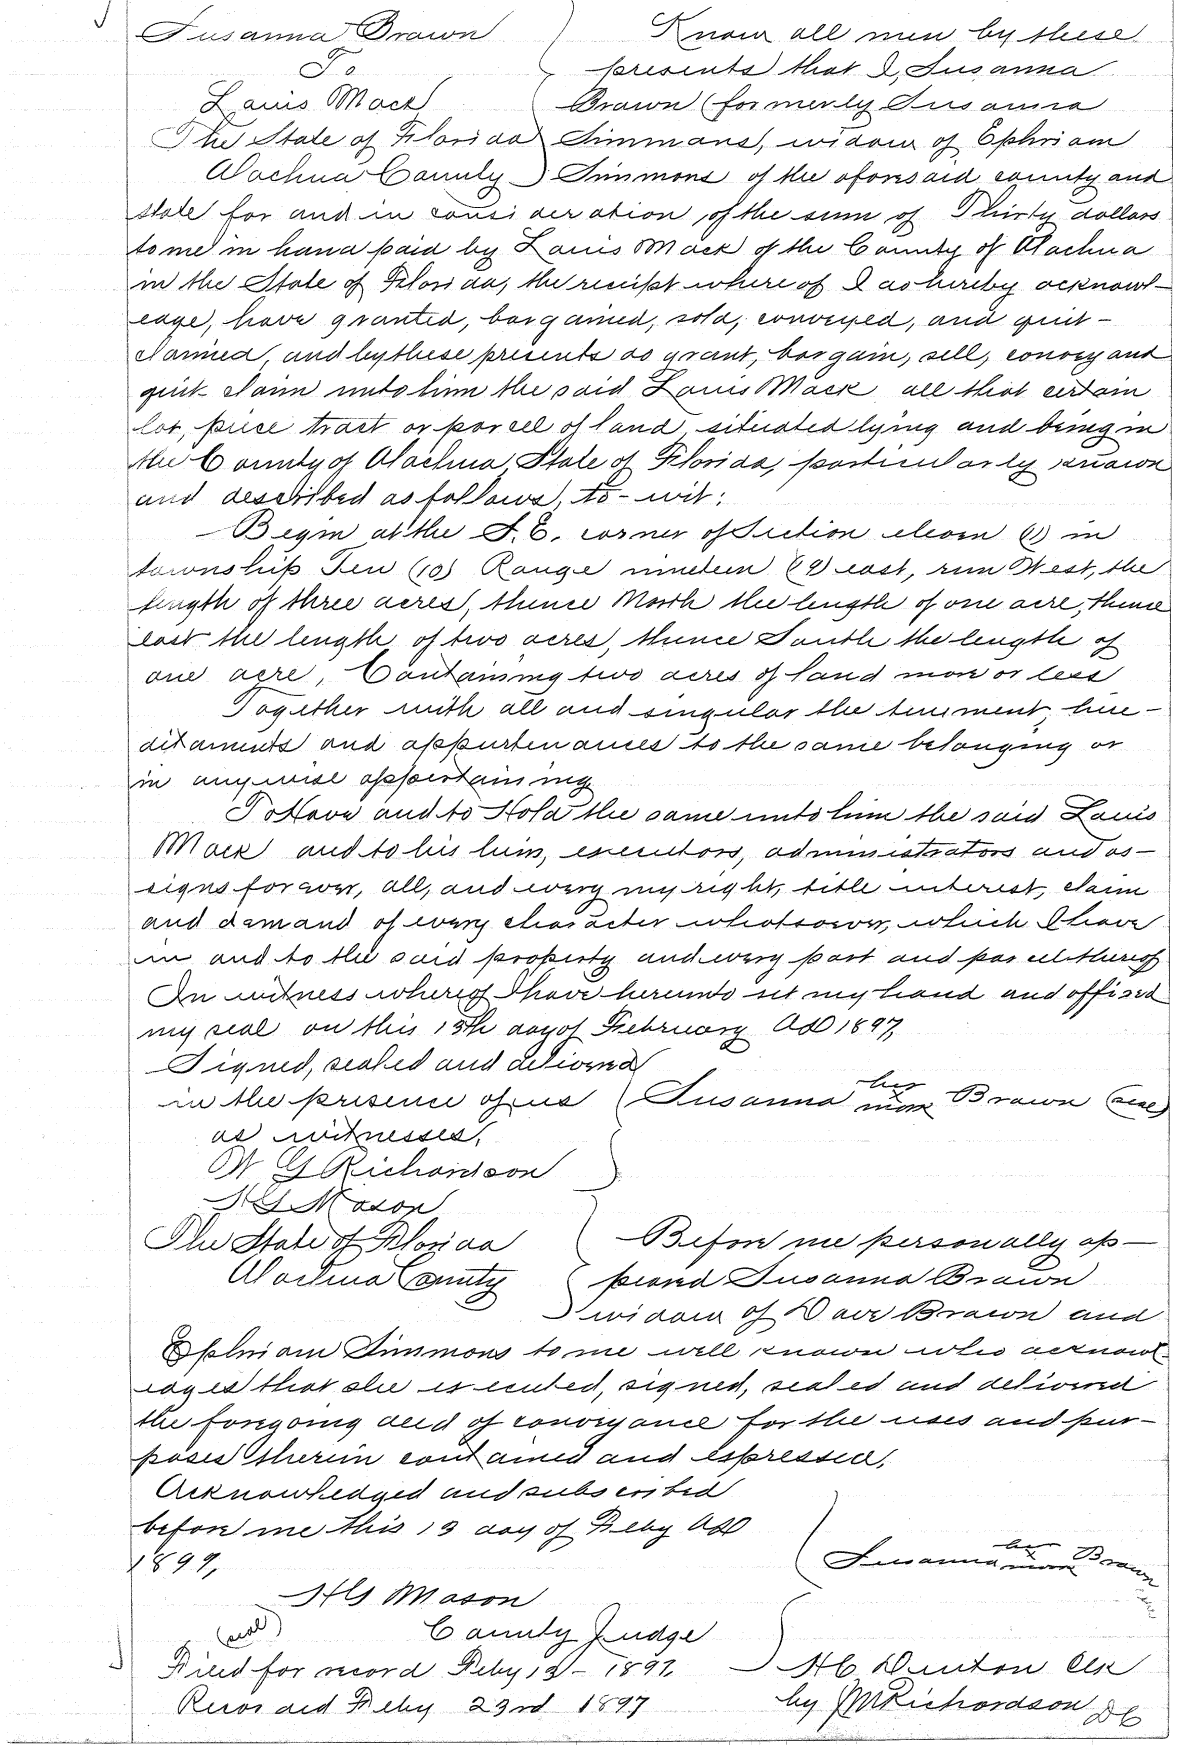 Susanna Brown
To
Louis Mack
The State of Florida
Alachua County
Know all men by these
presents that I, Susanna
Brown (formerly Susanna
Simmons), widow of Ephriam
Simmons of the aforesaid county and
state for and in consideration of the sum of Thirty dollars
to me in hand paid by Louis Mack of the County of Alachua
in the State of Florida, the receipt where of I do hereby acknowl-
edge, have granted, bargained, sold, conveyed, and quit-
claimed, and by these presents do grant, bargain, sell, convey and
quit-claim unto him the said Louis Mack all that certain
lot, piece tract or parcell of land, situated lying and being in
the County of Alachua, State of Florida, particularly known
and described as follows, to-wit:
Begin at the S.E. corner of Section eleven (11) in
township Ten (10) Range nineteen (19) east, run West, the
length of three acres, thence North the length of one acre, thence
east the length of two acres, thence South the length of
one acre, Containing two acres of land more or less
Together with all and singular the tenement, here-
ditaments and appurtenances to the same belonging or
in anywise appertaining
To Have and to Hold the same unto him the said Louis
Mack and to his heirs, executors, administrators and as-
signs forever, all, and every my right, title interest, claim
and demand of every character whatsoever, which I have
in and to the said property and every part and parcel thereof
In witness whereof I have hereunto set my hand and affixed
my seal on this 13th day of February AD 1897,
Signed, sealed and delivered
in the presence of us
as witnesses,
W G Richardson
H G Mason
Susanna her mark Brown (seal)
The State of Florida
Alachua County
Before me personally ap-
peared Susanna Brown
widow of Dave Brown and
Ephriam Simmons to me well known who acknowl-
edges that she executed, signed, sealed and delivered
the foregoing deed of conveyance for the uses and pur-
poses therein contained and expressed,
Acknowledged and subscribed
before me this 13 day of Feby AD
1897,
Susanna her mark Brown
H G Mason
(seal) County Judge
Filed for record Feby 13 - 1897
Recorded Feby 23rd 1897
H C Denton Clk
by J M Richardson DC